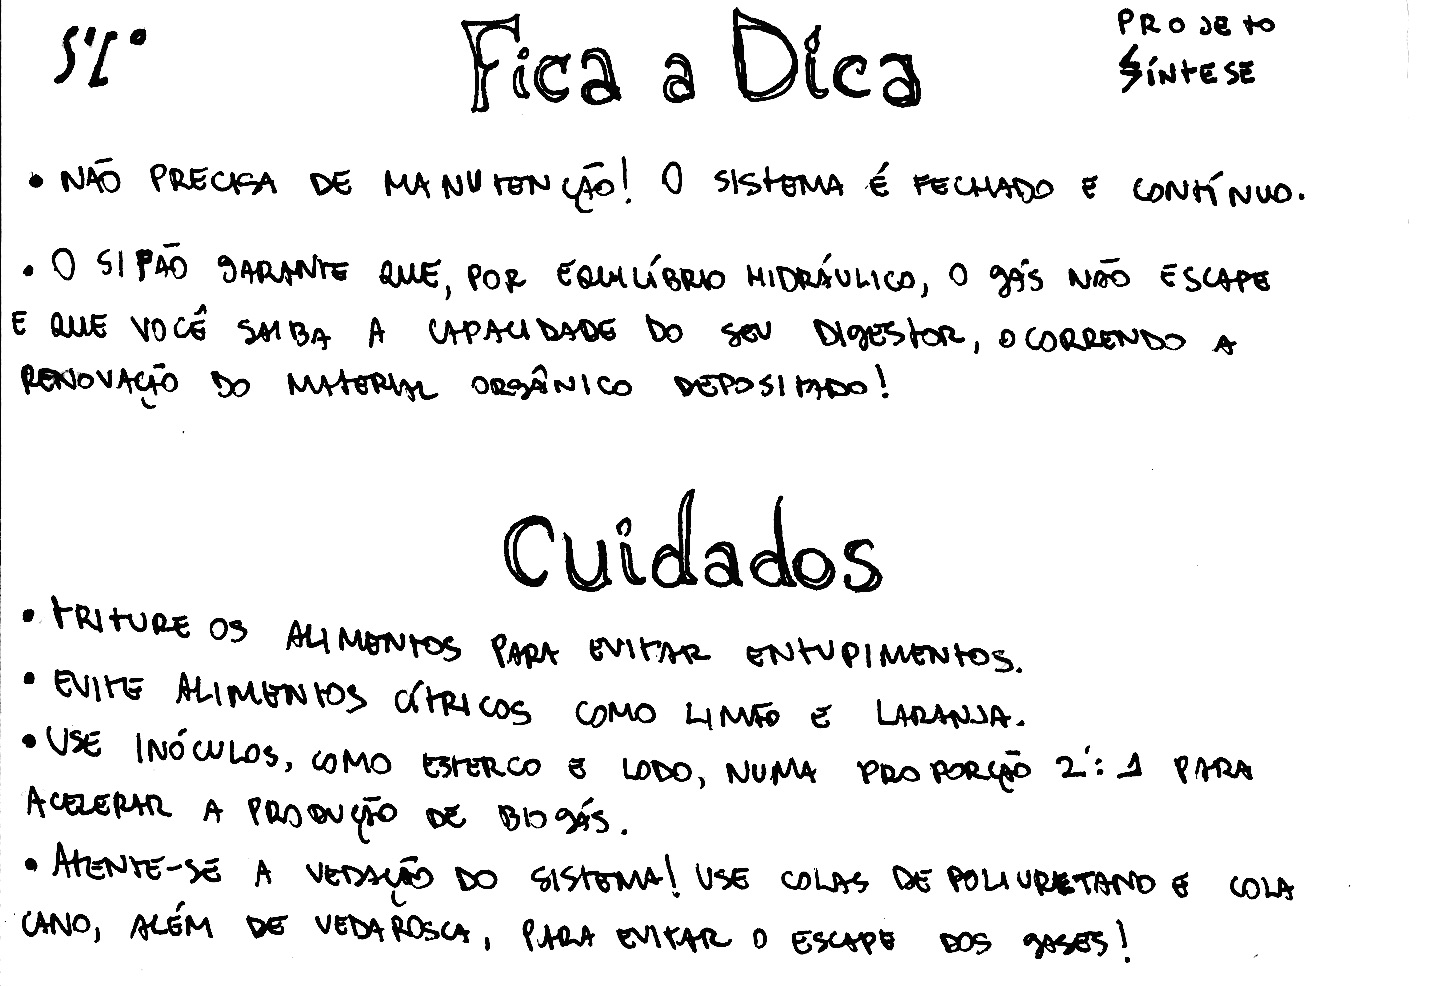 Fica a Dica
PROJETO
SÍNTESE
• NÃO PRECISA DE MANUTENÇÃO! O SISTEMA É FECHADO E CONTÍNUO.
• O SIFÃO GARANTE QUE, POR EQUILÍBRIO HIDRÁULICO, O GÁS NÃO ESCAPE
E QUE VOCÊ SAIBA A CAPACIDADE DO SEU DIGESTOR, OCORRENDO A
RENOVAÇÃO DO MATERIAL ORGÂNICO DEPOSITADO!
Cuidados
• TRITURE OS ALIMENTOS PARA EVITAR ENTUPIMENTOS.
• EVITE ALIMENTOS CÍTRICOS COMO LIMÃO E LARANJA.
• USE INÓCULOS, COMO ESTERCO E LODO, NUMA PROPORÇÃO 2:1 PARA
ACELERAR A PRODUÇÃO DE BIOGÁS.
• ATENTE-SE A VEDAÇÃO DO SISTEMA! USE COLAS DE POLIURETANO E COLA
CANO, ALÉM DE VEDA ROSCA, PARA EVITAR O ESCAPE DOS GASES!